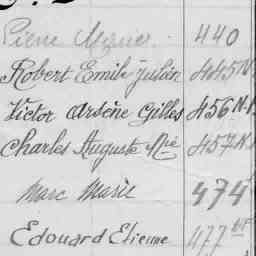 Pierre 440
Robert Emile Julien 445 N.
Victor Arsène Gilles 456 N.
Charles Auguste 457 N.
Marc Marie 474
Edouard Etienne 477